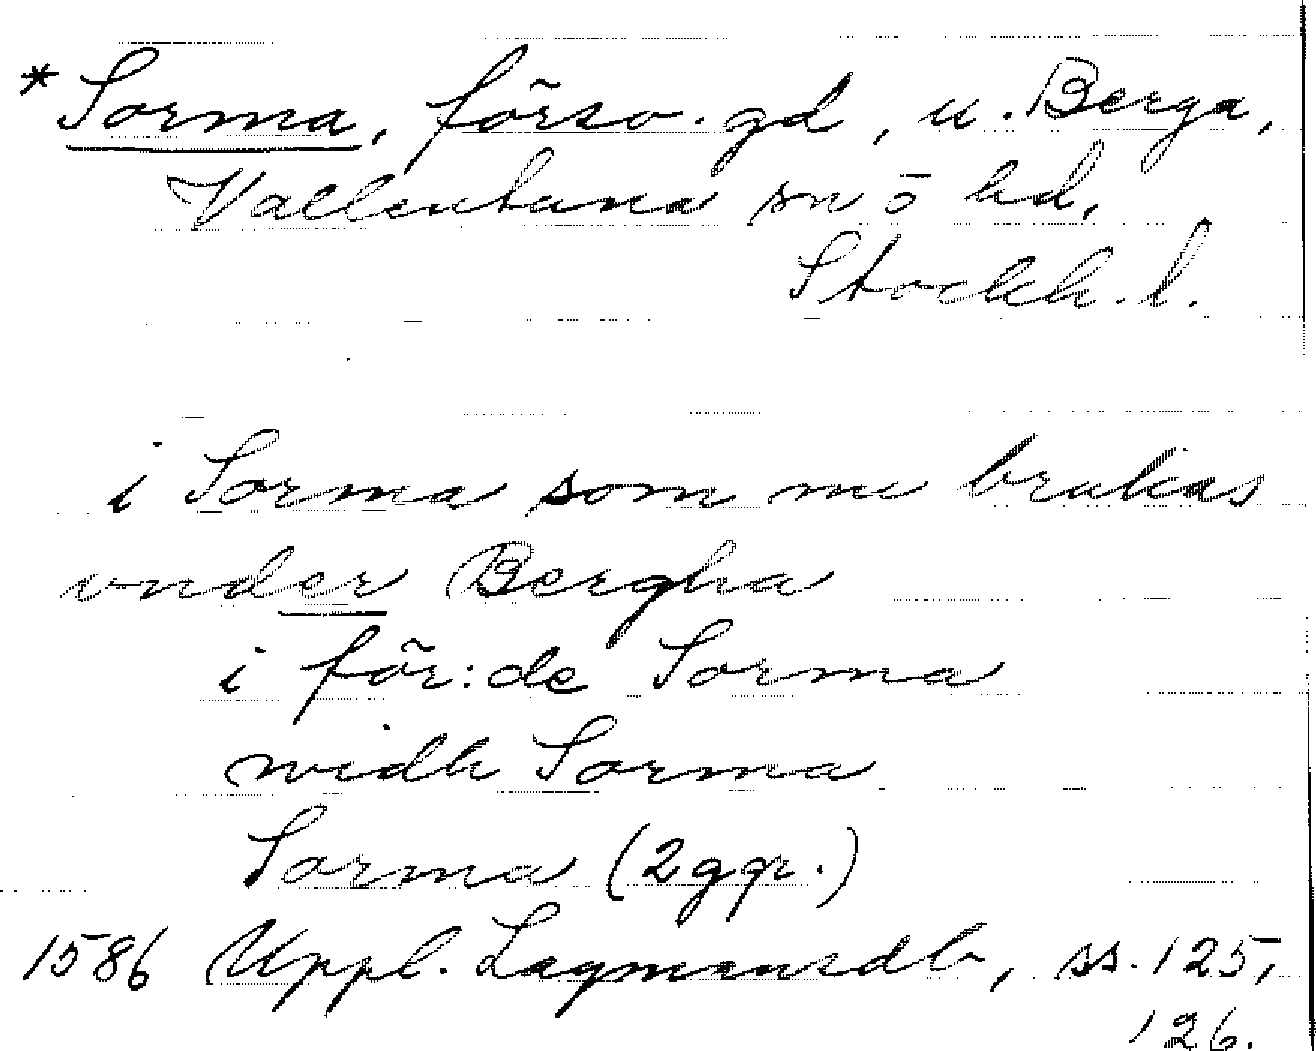 *Sorma, försv. gd, u. Berga,
Vallentuna sn o hd,
Stockh. l.
i Sorma som nu brukas
vnder Bergha
i för:de Sorma
widh Sorma
Sorma (2 ggr.)
1586 Uppl. Lagmansdb, ss. 125,
126.